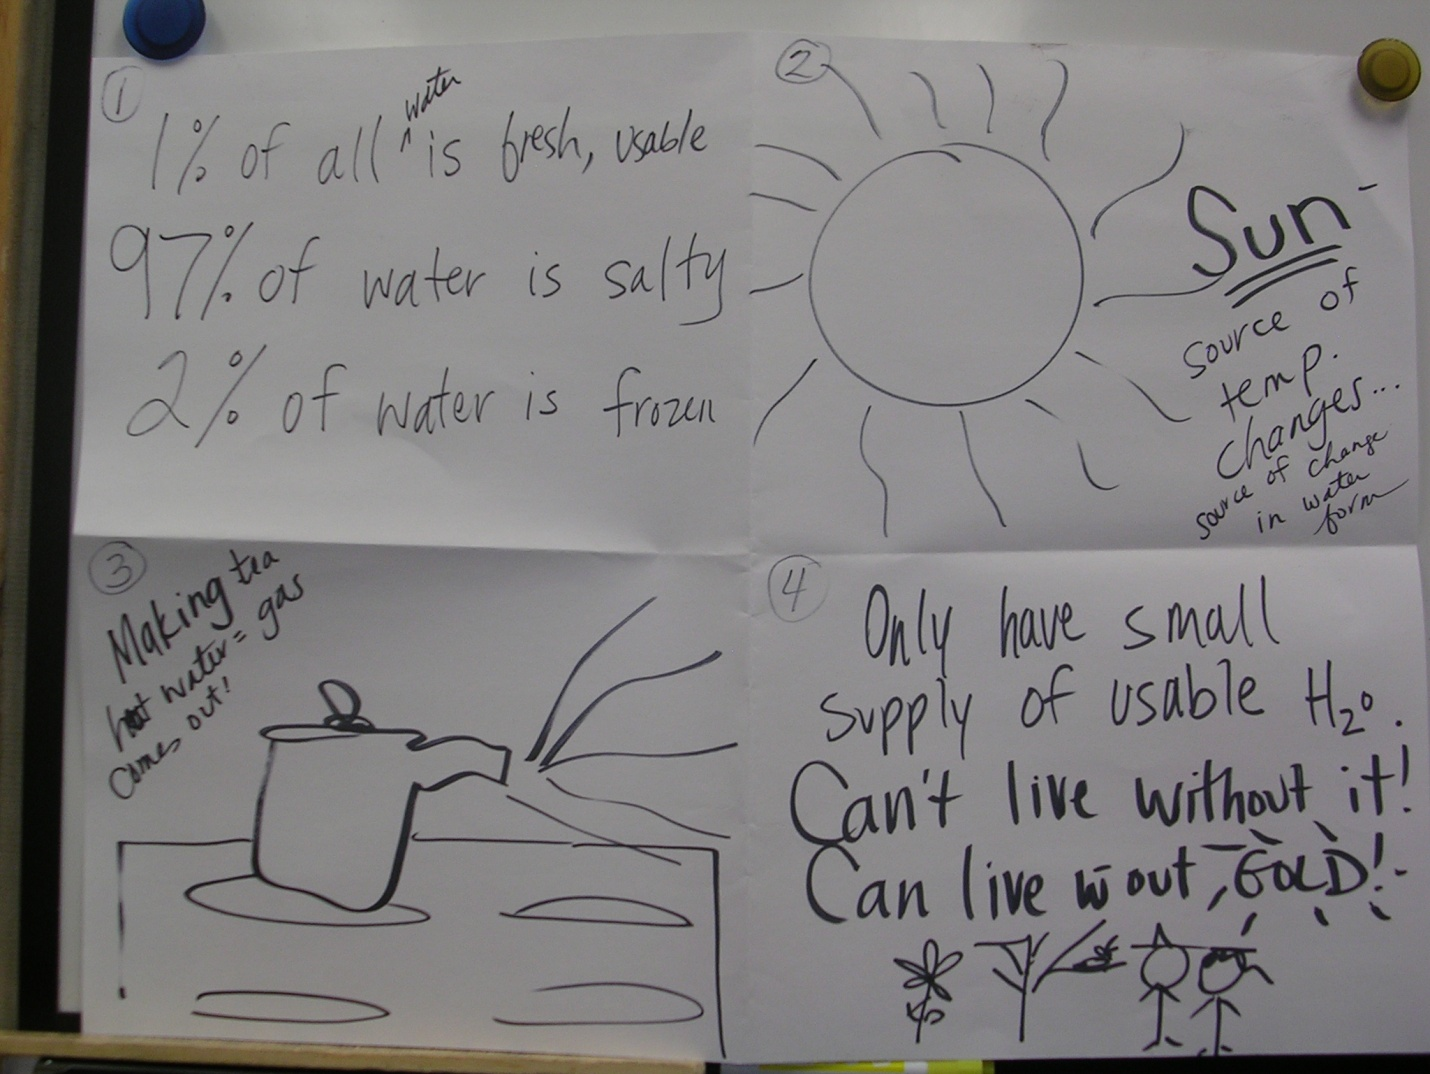 1
1% of all ^ water is fresh, usable
97% of water is salty
2% of water is frozen
2
Sun -
source of
temp.
changes...
source of change
in water
form
3
Making tea
hot water = gas
comes out!
4
Only have small
supply of usable H2O.
Can't live without it!
Can live w out GOLD!